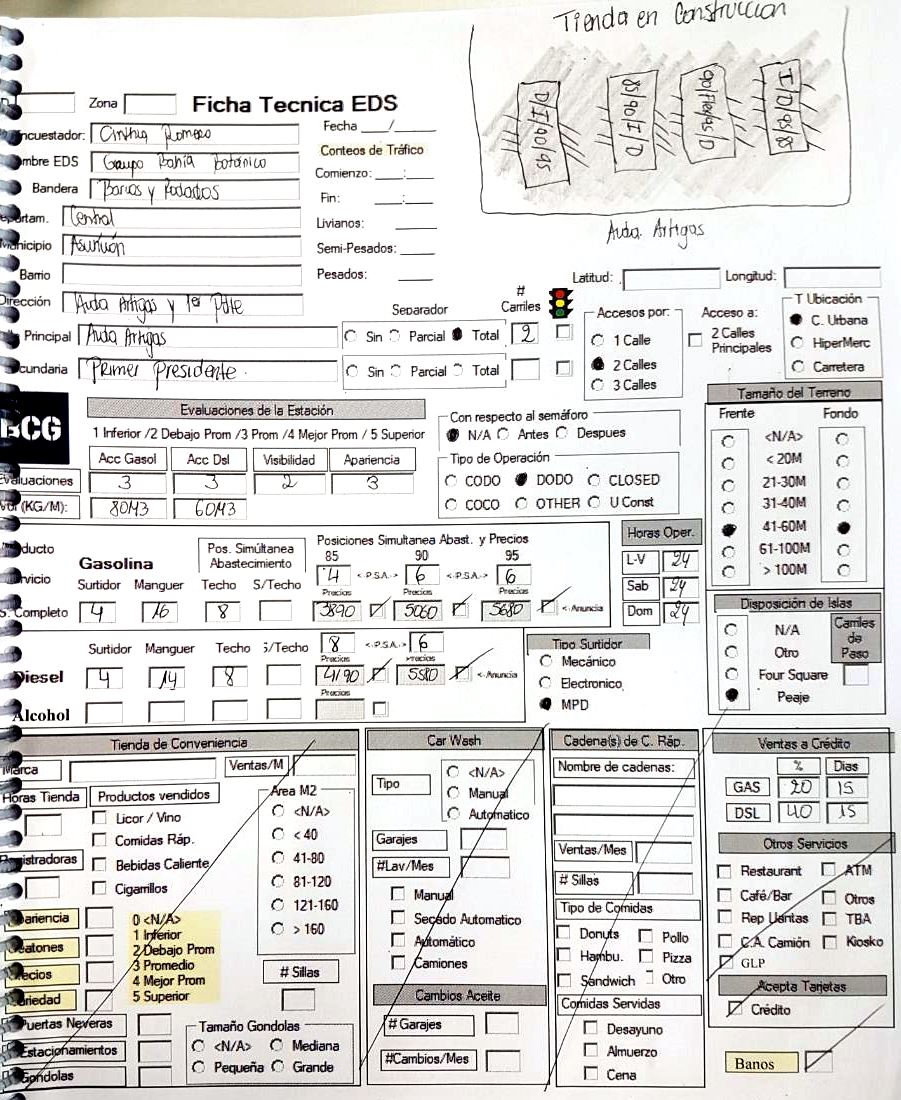 Tienda en Construccion
D/I/90/95
85/90/I/D
90/Flex/95/D
I/D/95/85
Avda. Artigas
Zona
Ficha Tecnica EDS
Encuestador: Cinthia Romero
Nombre EDS Grupo Bahía Botánico
Bandera Barcos y Rodados
Departam. Central
Municipio Asunción
Barrio
Dirección Avda Artigas y 1er Pdte
Fecha ___/___
Conteos de Tráfico
Comienzo: ___:___
Fin: ___:___
Livianos: ___
Semi-Pesados: ___
Pesados: ___
Latitud: Longitud:
Separador # Carriles
Principal Avda Artigas Sin Parcial Total 2
Secundaria Primer Presidente. Sin Parcial Total
Accesos por:
1 Calle
2 Calles
3 Calles
Acceso a:
2 Calles Principales
T Ubicación
C. Urbana
HiperMerc
Carretera
BCG
Evaluaciones de la Estación
1 Inferior /2 Debajo Prom /3 Prom /4 Mejor Prom / 5 Superior
Acc Gasol Acc Dsl Visibilidad Apariencia
Evaluaciones 3 3 2 3
Vol (KG/M): 80M3 60M3
Con respecto al semáforo
N/A Antes Despues
Tipo de Operación
CODO DODO CLOSED
COCO OTHER U Const
Tamaño del Terreno
Frente Fondo
<N/A>
< 20M
21-30M
31-40M
41-60M
61-100M
> 100M
Producto
Servicio
S. Completo
Gasolina
Pos. Simúltanea Abastecimiento
Posiciones Simultanea Abast. y Precios
85 90 95
4 <-P.S.A.-> 6 <-P.S.A.-> 6
Surtidor Manguer Techo S/Techo
Precios Precios Precios
4 16 8 3890 5060 5680 <-Anuncia
Horas Oper.
L-V 24
Sab 24
Dom 24
Surtidor Manguer Techo S/Techo 8 <-P.S.A.-> 6
Precios Precios
Diesel 4 14 8 4190 5580 <-Anuncia
Precios
Alcohol
Tipo Surtidor
Mecánico
Electronico
MPD
Disposición de Islas
N/A
Otro
Four Square
Peaje
Carriles de Paso
Tienda de Conveniencia
Marca Ventas/M
Horas Tienda Productos vendidos
Licor / Vino
Comidas Ráp.
Registradoras Bebidas Caliente
Cigarrillos
Area M2
<N/A>
< 40
41-80
81-120
121-160
> 160
Apariencia
Precios
Variedad
0 <N/A>
1 Inferior
2 Debajo Prom
3 Promedio
4 Mejor Prom
5 Superior
# Sillas
Puertas Neveras
Estacionamientos
Gondolas
Tamaño Gondolas
<N/A> Mediana
Pequeña Grande
Car Wash
Tipo
<N/A>
Manual
Automatico
Garajes
#Lav/Mes
Manual
Secado Automatico
Automático
Camiones
Cambios Aceite
# Garajes
#Cambios/Mes
Cadena(s) de C. Ráp.
Nombre de cadenas:
Ventas/Mes
# Sillas
Tipo de Comidas
Donuts Pollo
Hambu. Pizza
Sandwich Otro
Comidas Servidas
Desayuno
Almuerzo
Cena
Ventas a Crédito
% Dias
GAS 20 15
DSL 40 15
Otros Servicios
Restaurant ATM
Café/Bar Otros
Rep Llantas TBA
C.A. Camión Kiosko
GLP
Acepta Tarjetas
Crédito
Banos